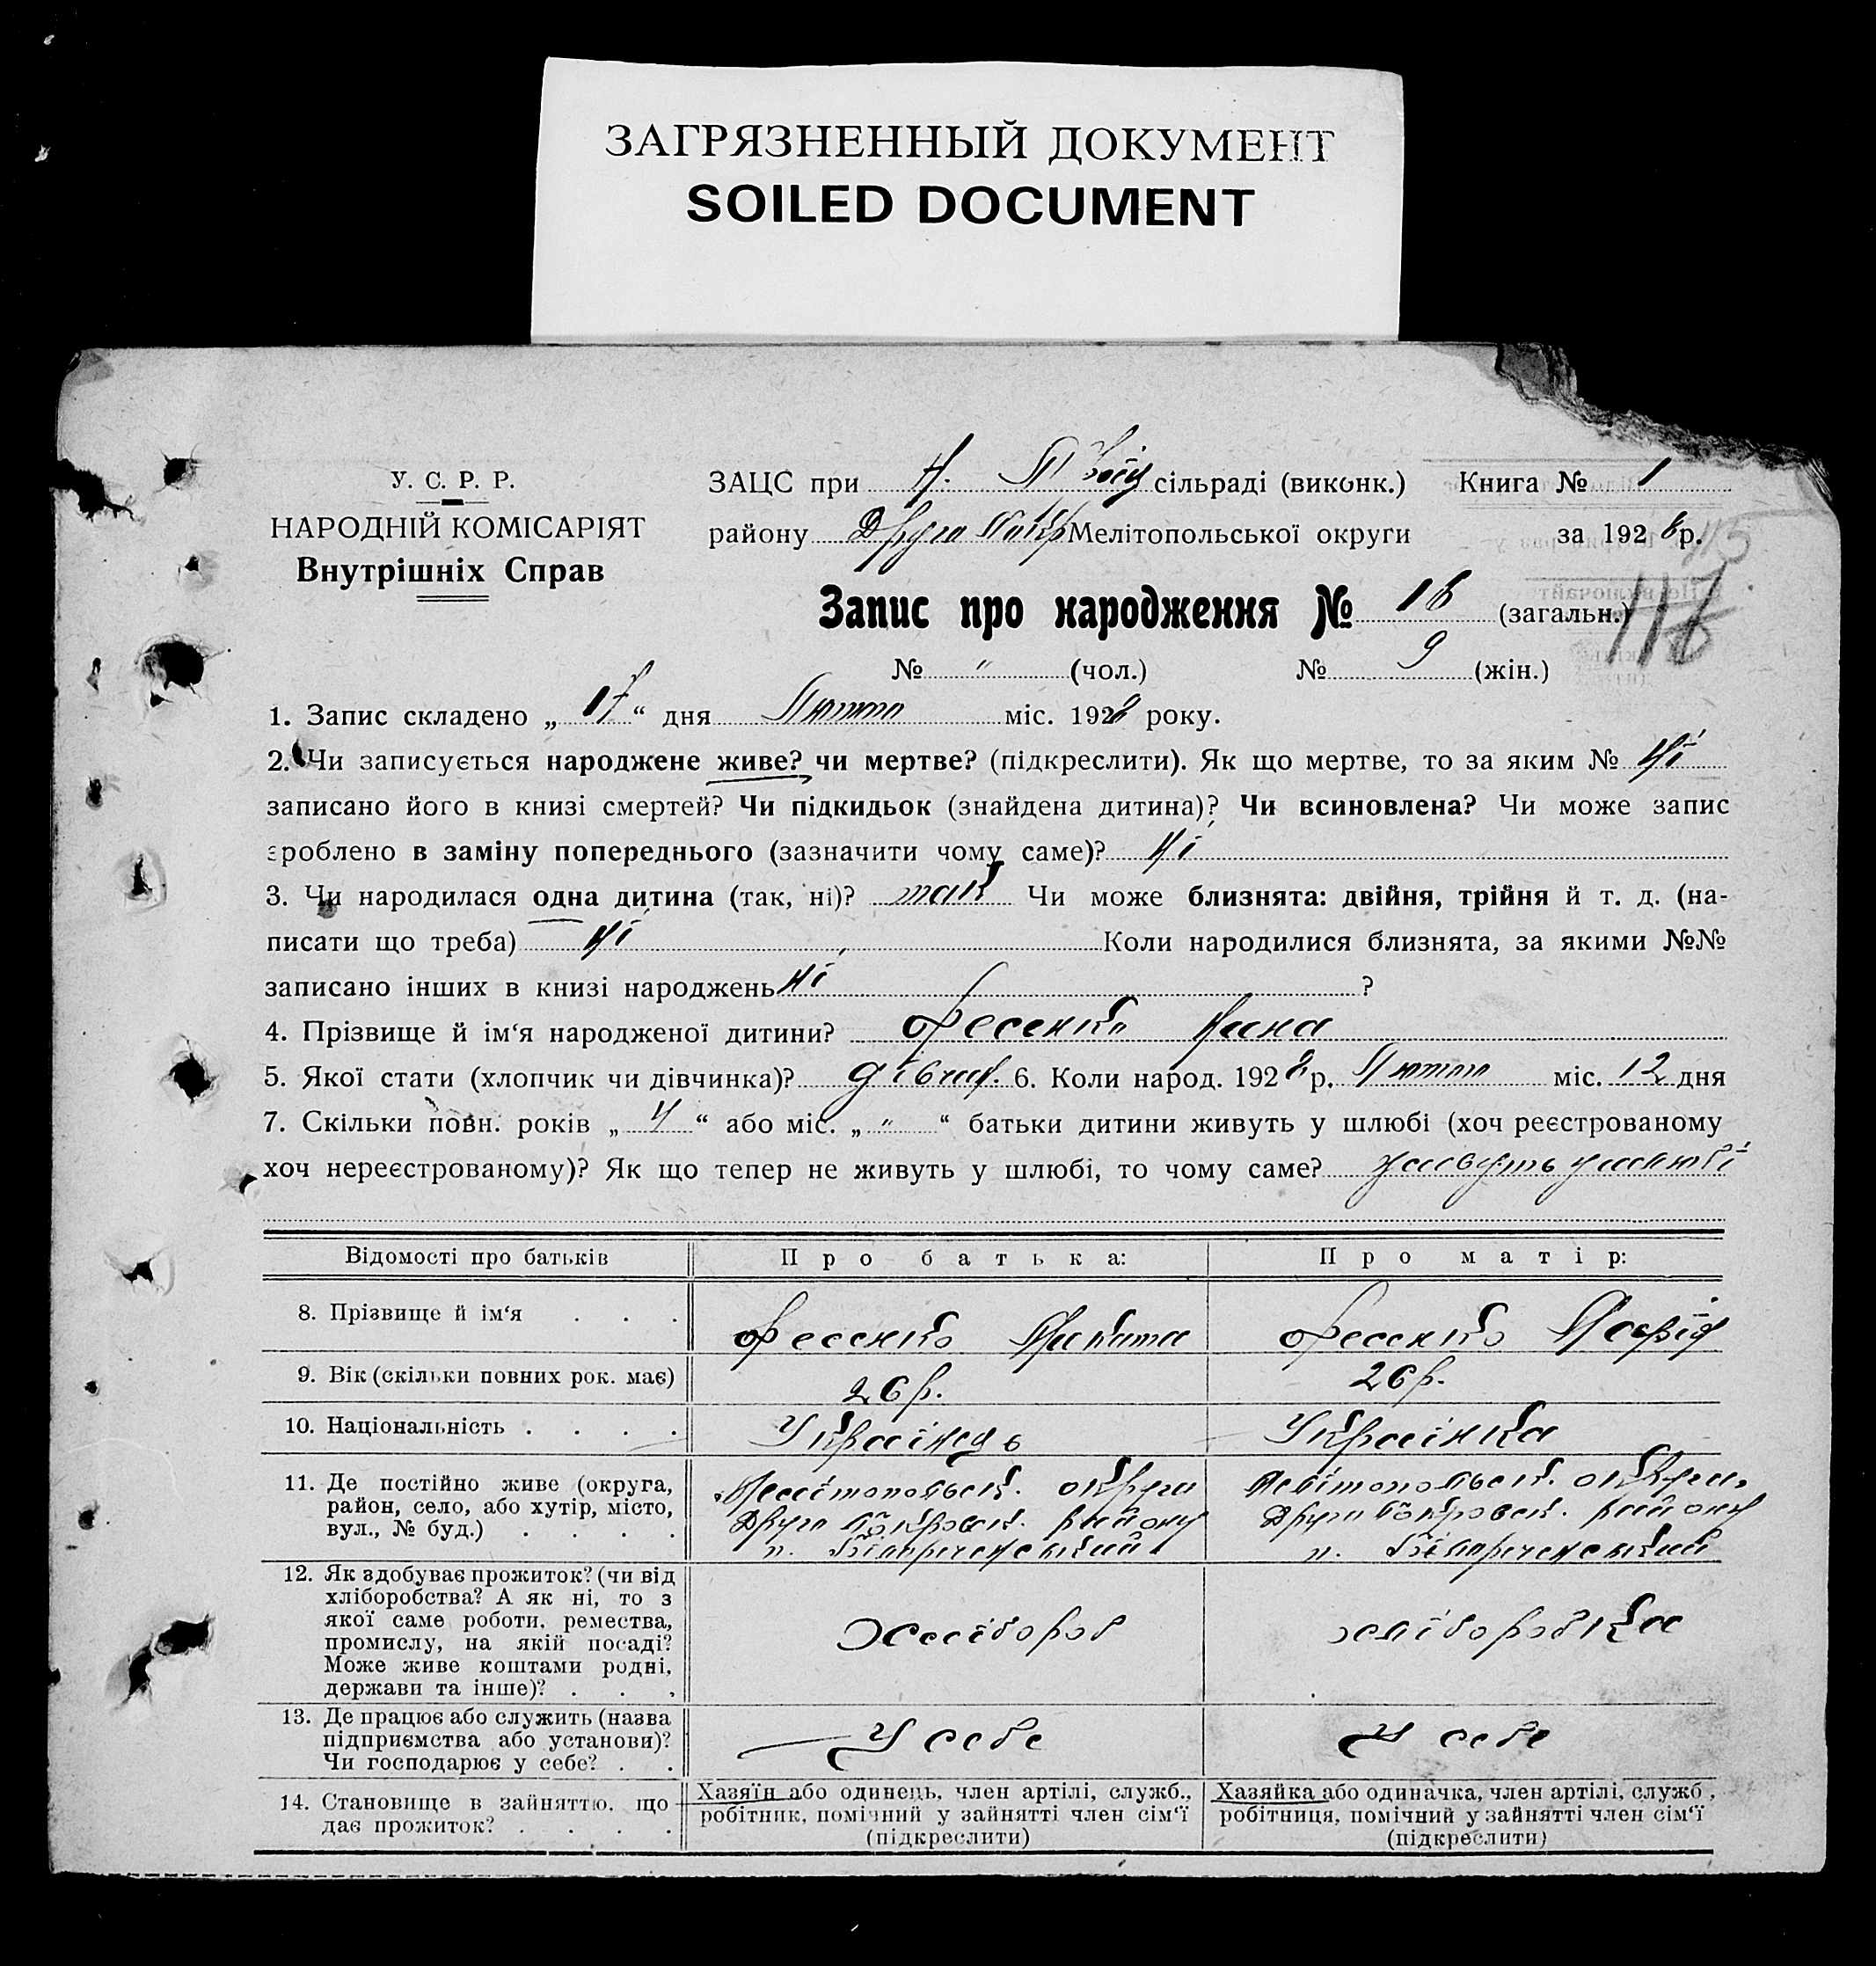 ЗАГРЯЗНЕННЫЙ ДОКУМЕНТ
SOILED DOCUMENT
У. С. Р. Р.
НАРОДНІЙ КОМІСАРІЯТ
Внутрішніх Справ
ЗАЦС при Н. сільраді (виконк.) Книга № 1
району Друго Покр Мелітопольської округи за 1928 р.
115
Запис про народження № 16 (загальн.)
116
№ " (чол.) № 9 (жін.)
1. Запис складено „ 17 “ дня Лютого міс. 1928 року.
2. Чи записується народжене живе? чи мертве? (підкреслити). Як що мертве, то за яким № Ні
записано його в книзі смертей? Чи підкидьок (знайдена дитина)? Чи всиновлена? Чи може запис
зроблено в заміну попереднього (зазначити чому саме)? Ні
3. Чи народилася одна дитина (так, ні)? так Чи може близнята: двійня, трійня й т. д. (на-
писати що треба) Ні Коли народилися близнята, за якими №№
записано інших в книзі народжень Ні ?
4. Прізвище й ім‘я народженої дитини? Фесенко Нина
5. Якої стати (хлопчик чи дівчинка)? дівич. 6. Коли народ. 1928 р. Лютого міс. 12 дня
7. Скільки повн. років „ 4 “ або міс. „ " “ батьки дитини живуть у шлюбі (хоч реєстрованому
хоч нереєстрованому)? Як що тепер не живуть у шлюбі, то чому саме? живуть ушлюбі
Відомості про батьків Про батька: Про матір:
8. Прізвище й ім‘я . . . Фесенко Микита Фесенко Марія
9. Вік (скільки повних рок. має) 26 р. 26 р.
10. Національність . . . . Українець Українка
11. Де постійно живе (округа, район, село, або хутір, місто, вул., № буд.) . . . .
Мелітопольськ. округи
Друго Покровськ. району
п.
Мелітопольськ. округи
Друго Покровськ. району
п.
12. Як здобуває прожиток? (чи від
хліборобства? А як ні, то з
якої саме роботи, ремества,
промислу, на якій посаді?
Може живе коштами родні,
держави та інше)? . . .
Хлібороб хліборобка
13. Де працює або служить (назва
підприємства або установи)?
Чи господарює у себе? . .
У себе У себе
14. Становище в зайняттю, що
дає прожиток? . . . .
Хазяїн або одинець, член артілі, служб.,
робітник, помічний у зайнятті член сім‘ї
(підкреслити)
Хазяйка або одиначка, член артілі, служб.,
робітниця, помічний у зайнятті член сім‘ї
(підкреслити)